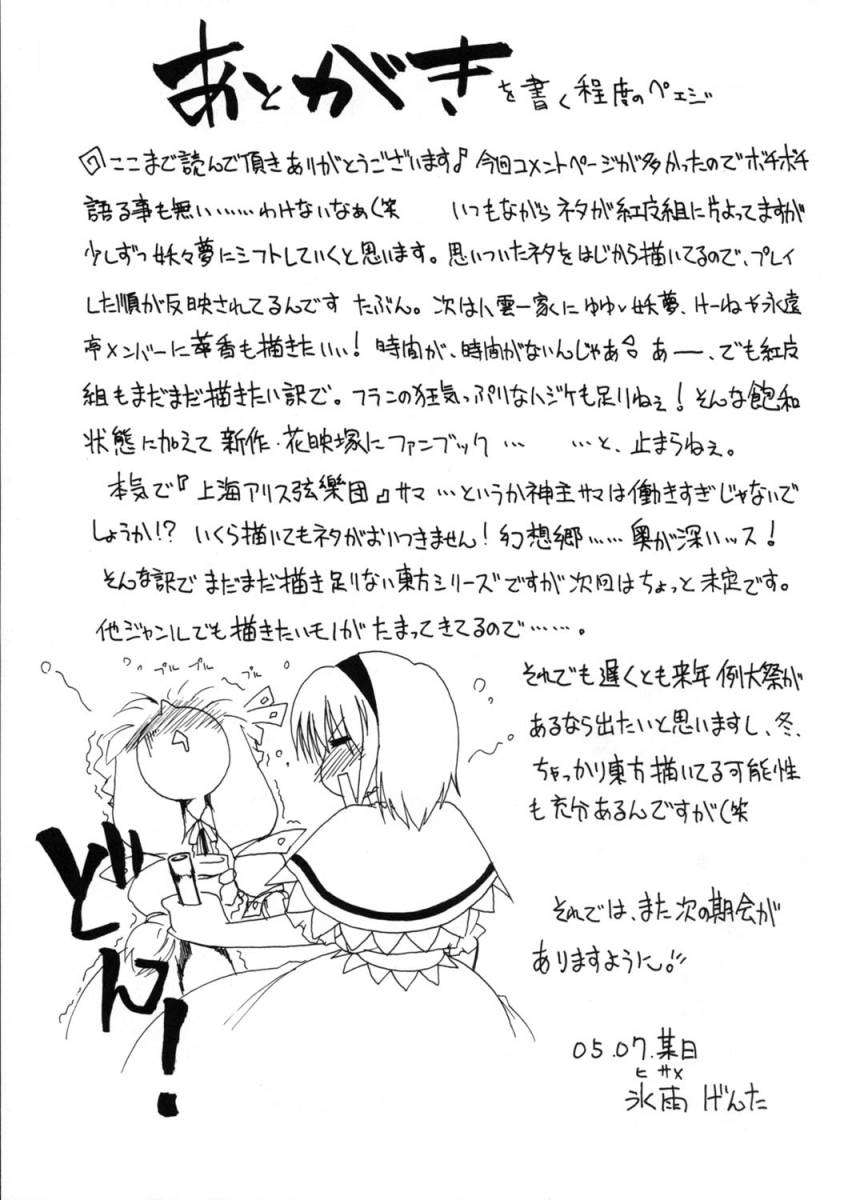 あとがきを書く程度のペェジ
ここまで読んで頂きありがとうございます♪ 今回コメントページが多かったのでボチボチ
語る事も無い……わけないなぁ(笑 いつもながらネタが紅魔組に片よってますが
少しずつ妖々夢にシフトしていくと思います。思いついたネタをはじから描いてるので、プレイ
した順が反映されてるんです たぶん。次は八雲一家にゆゆ、妖夢、けーねや永遠
亭メンバーに萃香も描きたいい! 時間が、時間がないんじゃあ あー、でも紅魔
組もまだまだ描きたい訳で。フランの狂気っぷりなハジケも足りねぇ!そんな飽和
状態に加えて 新作・花映塚にファンブック … …と、止まらねぇ。
本気で『上海アリス弦樂団』サマ …というか神主サマは働きすぎじゃないで
しょうか!? いくら描いてもネタがおいつきません!幻想郷……奥が深いッス!
そんな訳でまだまだ描き足りない東方シリーズですが次回はちょっと未定です。
他ジャンルでも描きたいモノがたまってきてるので……。
それでも遅くとも来年例大祭が
あるなら出たいと思いますし、冬、
ちゃっかり東方描いてる可能性
も充分あるんですが(笑
それでは、また次の期会が
ありますように。!!
プルプル
プルプル
プル
どん!
05.07.某日
ヒサメ
氷雨 げんた